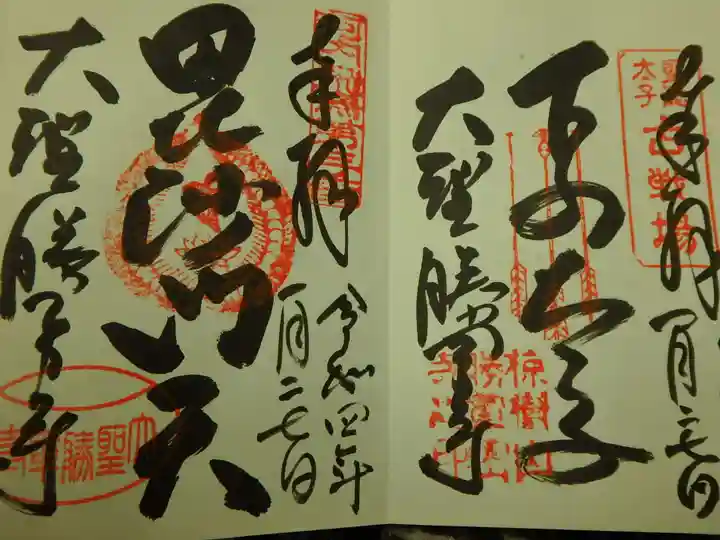 奉拝
一月二七日
聖徳
太子
古戦場
下の太子
椋樹山
大聖勝軍寺
奉拝
令和四年
一月二七日
毘沙門天
大聖勝軍寺
大聖勝軍寺